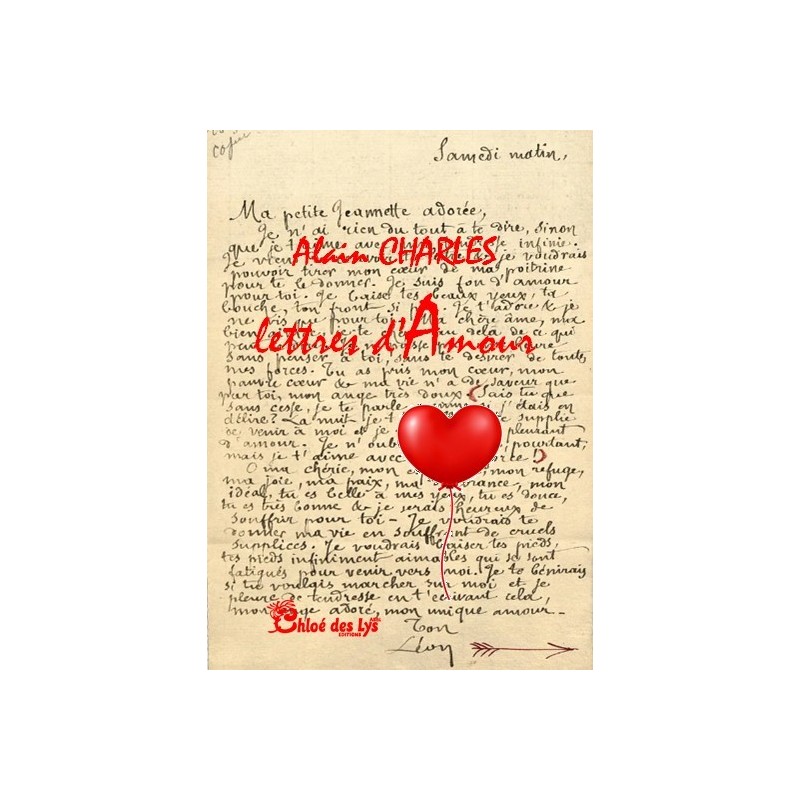 copie
Samedi matin,
Ma petite Jeannette adorée,
Je n'ai rien du tout à te dire, sinon
que je t'aime avec infinie.
Alain CHARLES
Je je voudrais
pouvoir tirer mon cœur de ma poitrine
pour te le donner. Je suis fou d'amour
pour toi. Je baise tes beaux yeux, ta
bouche, ton front si Je t'adore & je
ne vis que pour toi, Ma chère âme, ma
au delà de ce qui
lettres d'Amour
sans penser à toi, sans te désirer de toutes
mes forces. Tu as pris mon cœur, mon
pauvre cœur & ma vie n'a de saveur que
par toi, mon ange très doux. Sais tu que
sans cesse, je te parle comme si j'étais en
délire? La nuit je t' supplie
de venir à moi et je pleurant
d'amour. Je n'oub pourtant,
mais je t'aime avec force!
O ma chérie, mon mon refuge,
ma joie, ma paix, ma mon
idéal, tu es belle à mes yeux, tu es douce,
tu es très bonne & je serais heureux de
souffrir pour toi - Je voudrais te
donner ma vie en souffrant de cruels
supplices. Je voudrais baiser tes pieds,
tes pieds infiniment aimables qui se sont
fatigués pour venir vers moi. Je te bénirais
si tu voulais marcher sur moi et je
pleure de tendresse en t'écrivant cela,
mon ange adoré, mon unique amour -
Chloé des Lys
EDITIONS
Ton
Léon